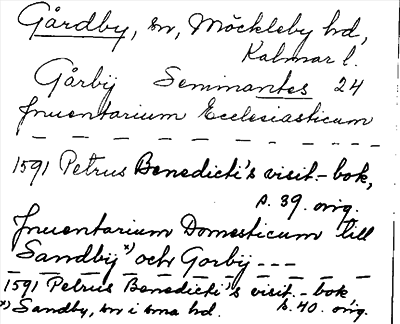 Gårdby, sn, Möckleby hd,
Kalmar l.
Gårbij Seminantes 24
Inuentarium Ecclesiasticum
1591 Petrus Benedicti's visit.-bok,
s. 39. orig.
Inuentarium Domesticum till
Sandbij *) och Gorbij ---
1591 Petrus Benedicti's visit.-bok
s. 40. orig.
*) Sandby, sn i sma hd.